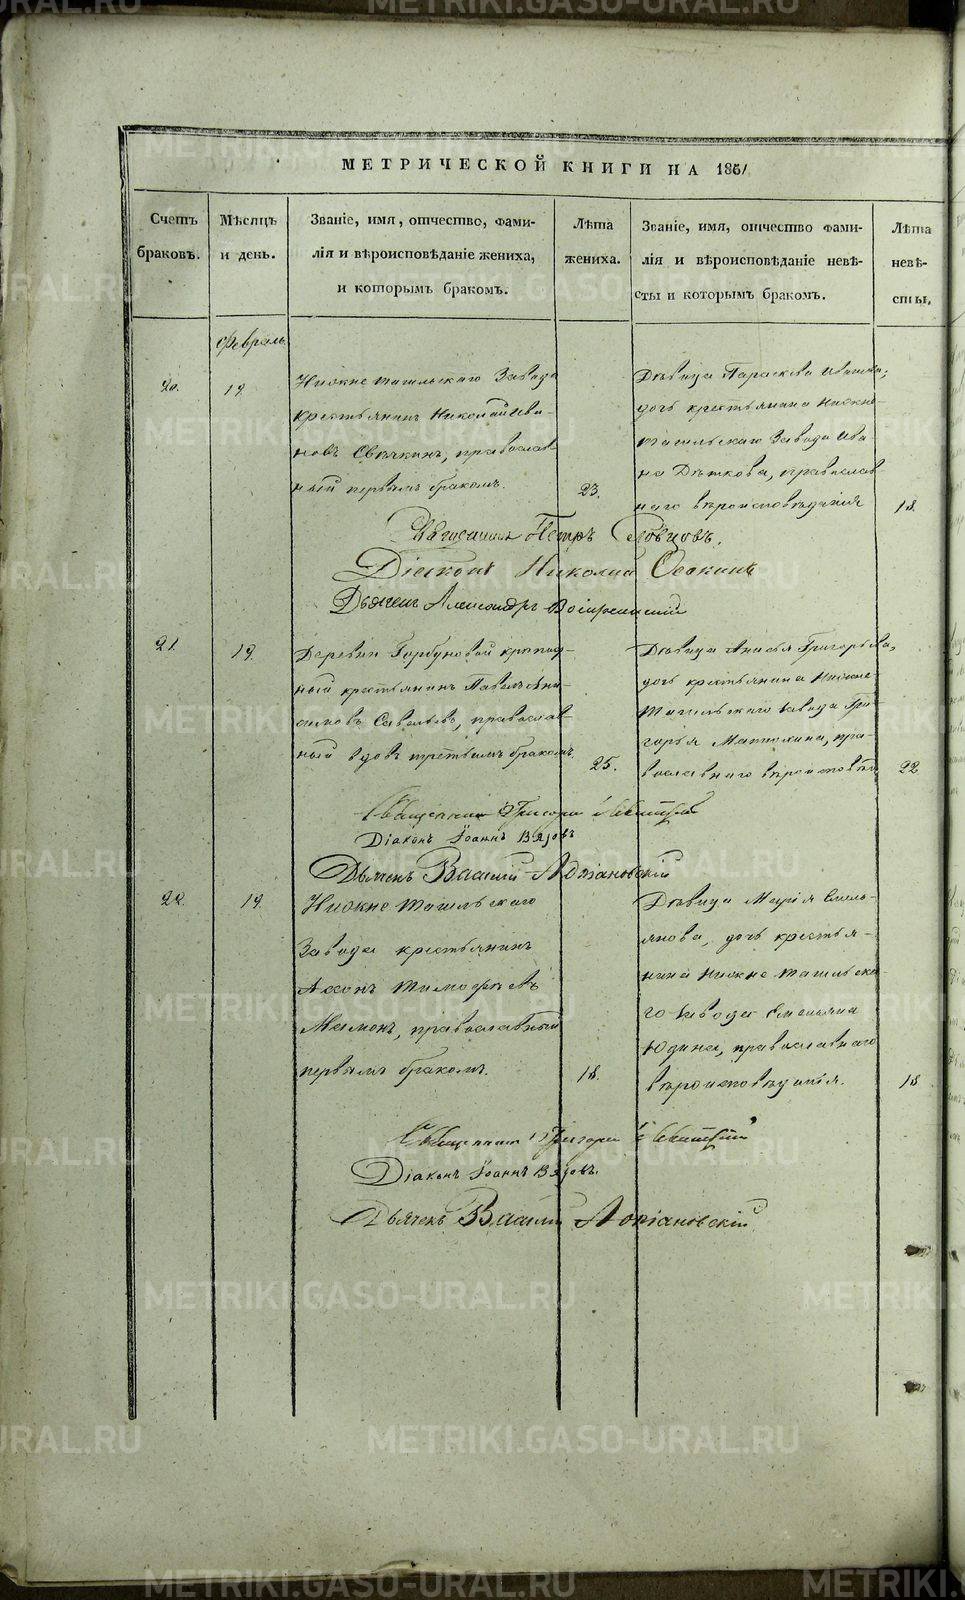 МЕТРИЧЕСКОЙ КНИГИ НА 1861
Счетъ
браковъ.
Мѣсяцъ
и день.
Званіе, имя, отчество, фами-
лія и вѣроисповѣданіе жениха,
и которымъ бракомъ.
Лѣта
жениха.
Званіе, имя, отчество фами-
лія и вѣроисповѣданіе невѣ-
сты и которымъ бракомъ.
Лѣта
невѣ-
сты.
Февраль
20.
19.
Нижне тагильскаго Завода
крестьянинъ Николай Ива-
новъ, православ-
ный первымъ бракомъ.
23.
Дѣвица Параскева Иванова,
дочь крестьянина Нижне-
тагильскаго Завода Ива-
на, православ-
наго вѣроисповѣданія
18.
Священникъ Петръ
Діаконъ Николай Осокинъ
Дьячекъ Александръ
21.
19.
Деревни Горбуновой
крестьянинъ Павелъ Ани-
симовъ Савельевъ, православ-
ный вдовъ третьимъ бракомъ.
25.
Дѣвица Анисья Григорьева,
дочь крестьянина Нижне-
тагильскаго завода Гри-
горья Матюхина, пра-
вославнаго
22
Священникъ Григорій
Діаконъ Іоаннъ
Дьячекъ Василій
22.
19.
Нижне тагильскаго
Завода крестьянинъ
Тимофѣевъ
Мамонъ, православный
первымъ бракомъ.
18.
Дѣвица Марія Емель-
янова, дочь крестья-
нина Нижне тагильска-
го завода Емельяна
Юдина, православнаго
вѣроисповѣданія.
18
Священникъ Григорій
Діаконъ Іоаннъ
Дьячекъ Василій
METRIKI.GASO-URAL.RU